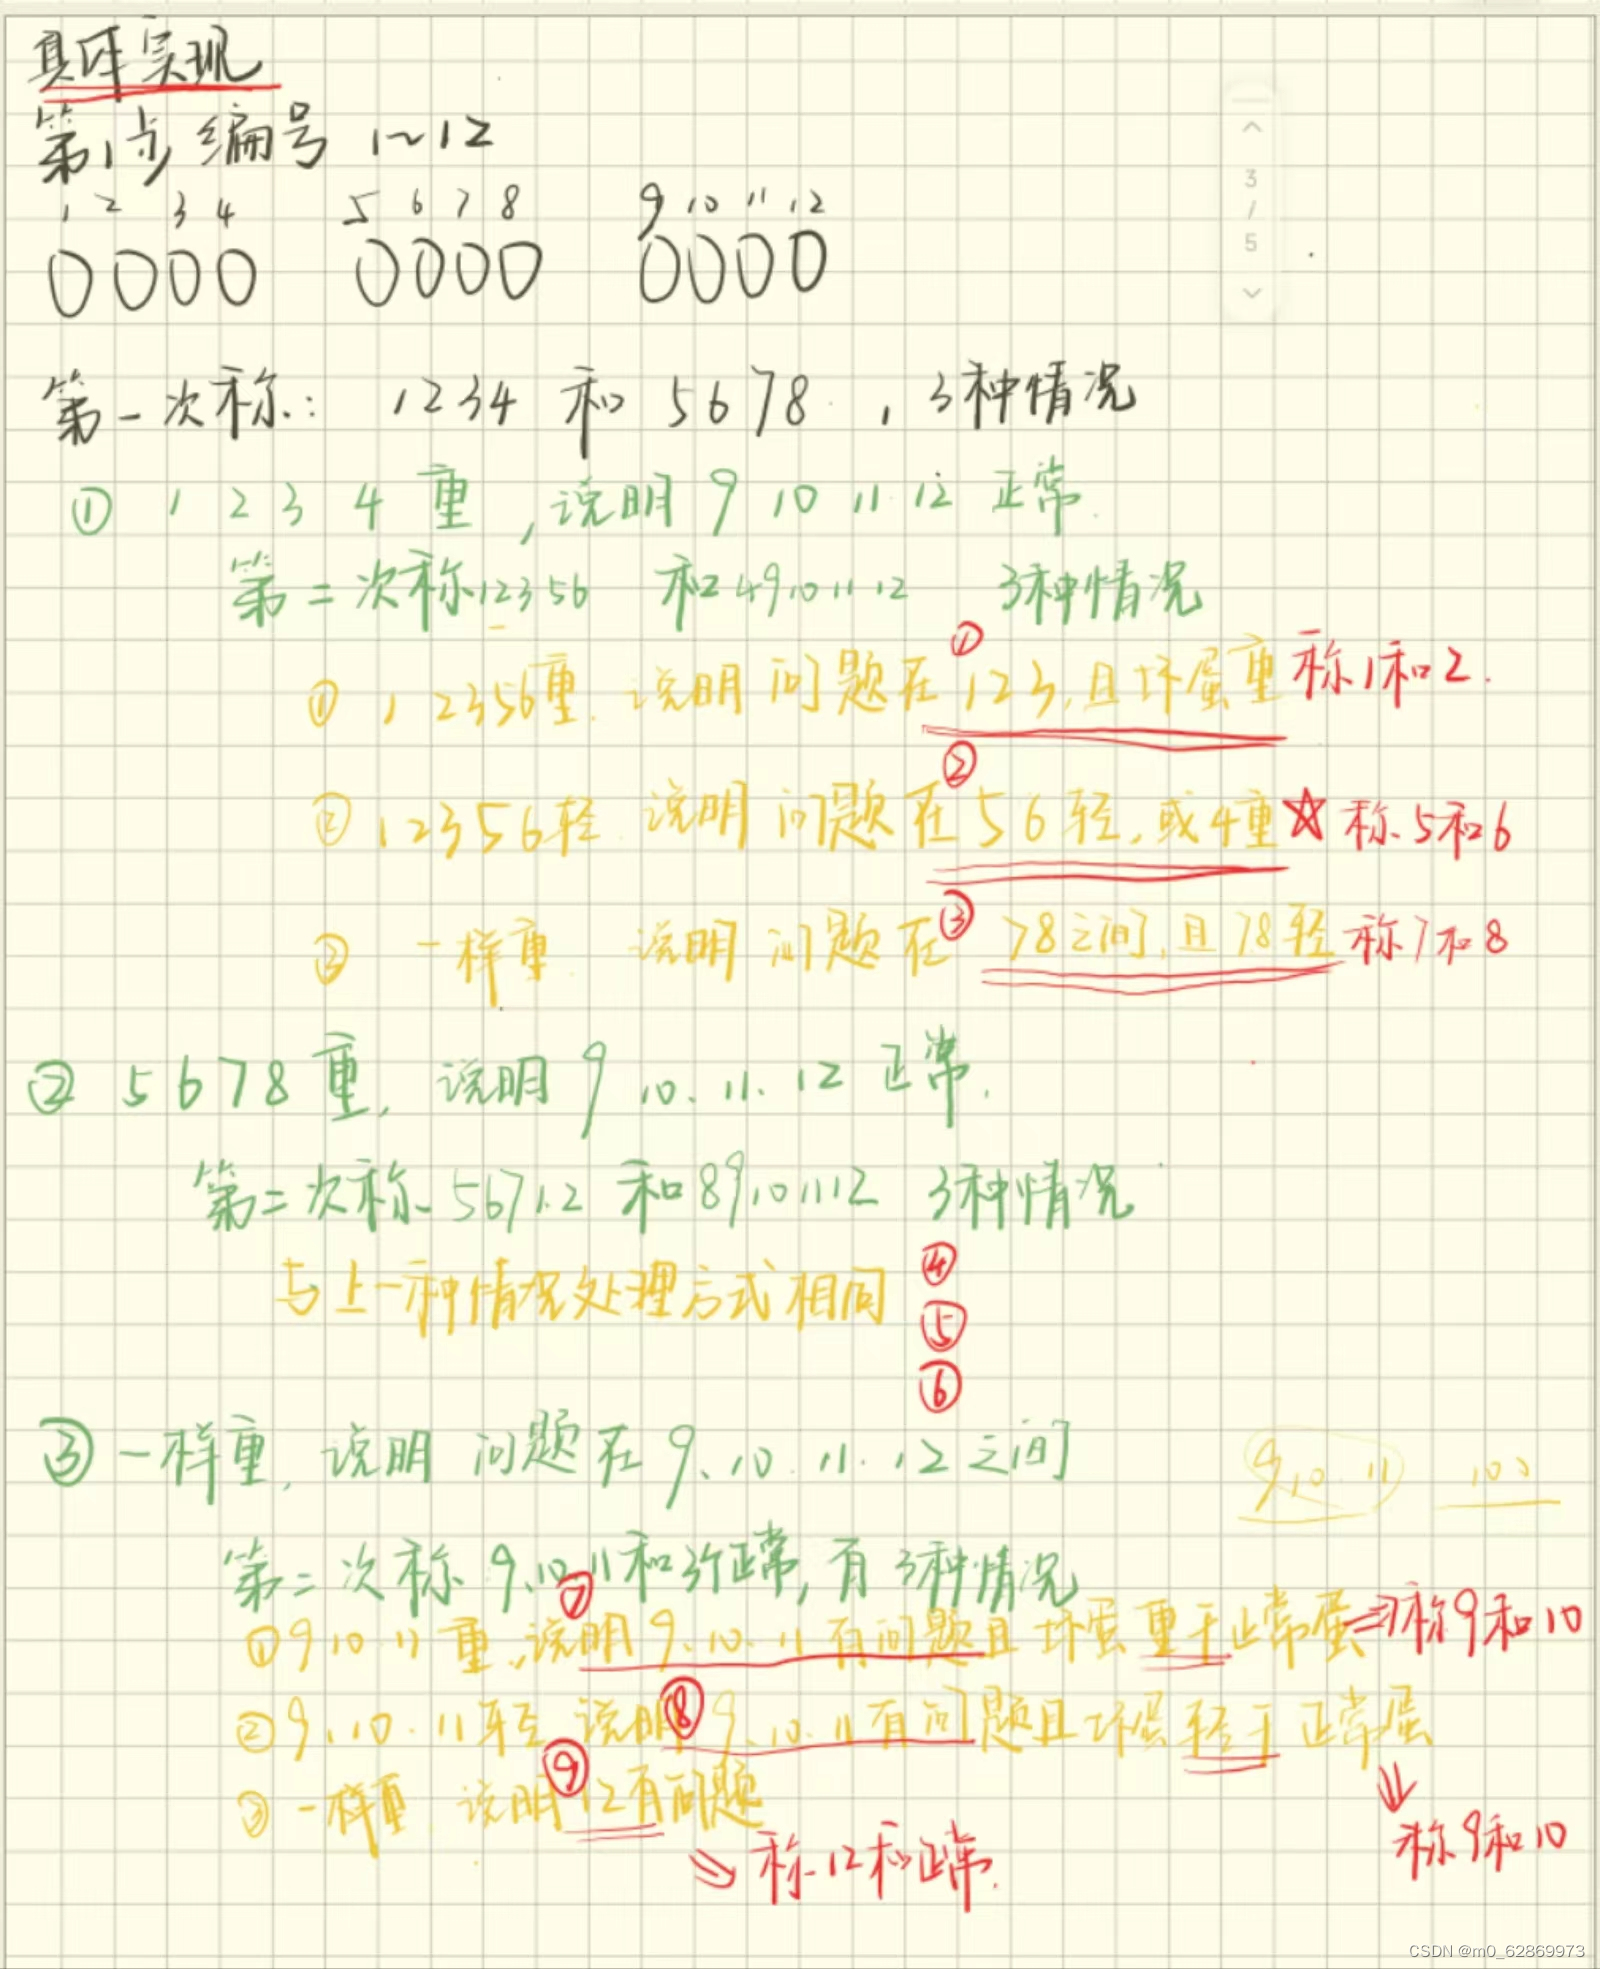 具体实现
第1步 编号 1~12
1 2 3 4 5 6 7 8 9 10 11 12
第一次称: 1234 和 5678 , 3种情况
① 1 2 3 4 重, 说明 9 10 11 12 正常.
第二次称12356 和 49101112 3种情况
① 12356重. 说明问题在 ① 123, 且坏蛋重 称1和2.
② 12356轻. 说明问题在 ② 56轻, 或4重 ☆ 称5和6
③ 一样重. 说明问题在 ③ 78之间, 且78轻 称7和8
② 5678重, 说明 9 10. 11. 12 正常.
第二次称 56712 和 89101112 3种情况
与上一种情况处理方式相同 ④
⑤
⑥
③ 一样重, 说明问题在 9. 10. 11. 12 之间
9 10. 11
第二次称 9.10.11和3个正常, 有3种情况
① 9 10 11 重, 说明 ⑦ 9. 10. 11 有问题且坏蛋重于正常蛋 ⇒ 称9和10
② 9. 10. 11 轻 说明 ⑧ 9. 10. 11 有问题且坏蛋轻于正常蛋
③ 一样重. 说明 ⑨ 12有问题
⇓ 称9和10
⇒ 称12和正常.
3
/
5
CSDN @m0_62869973